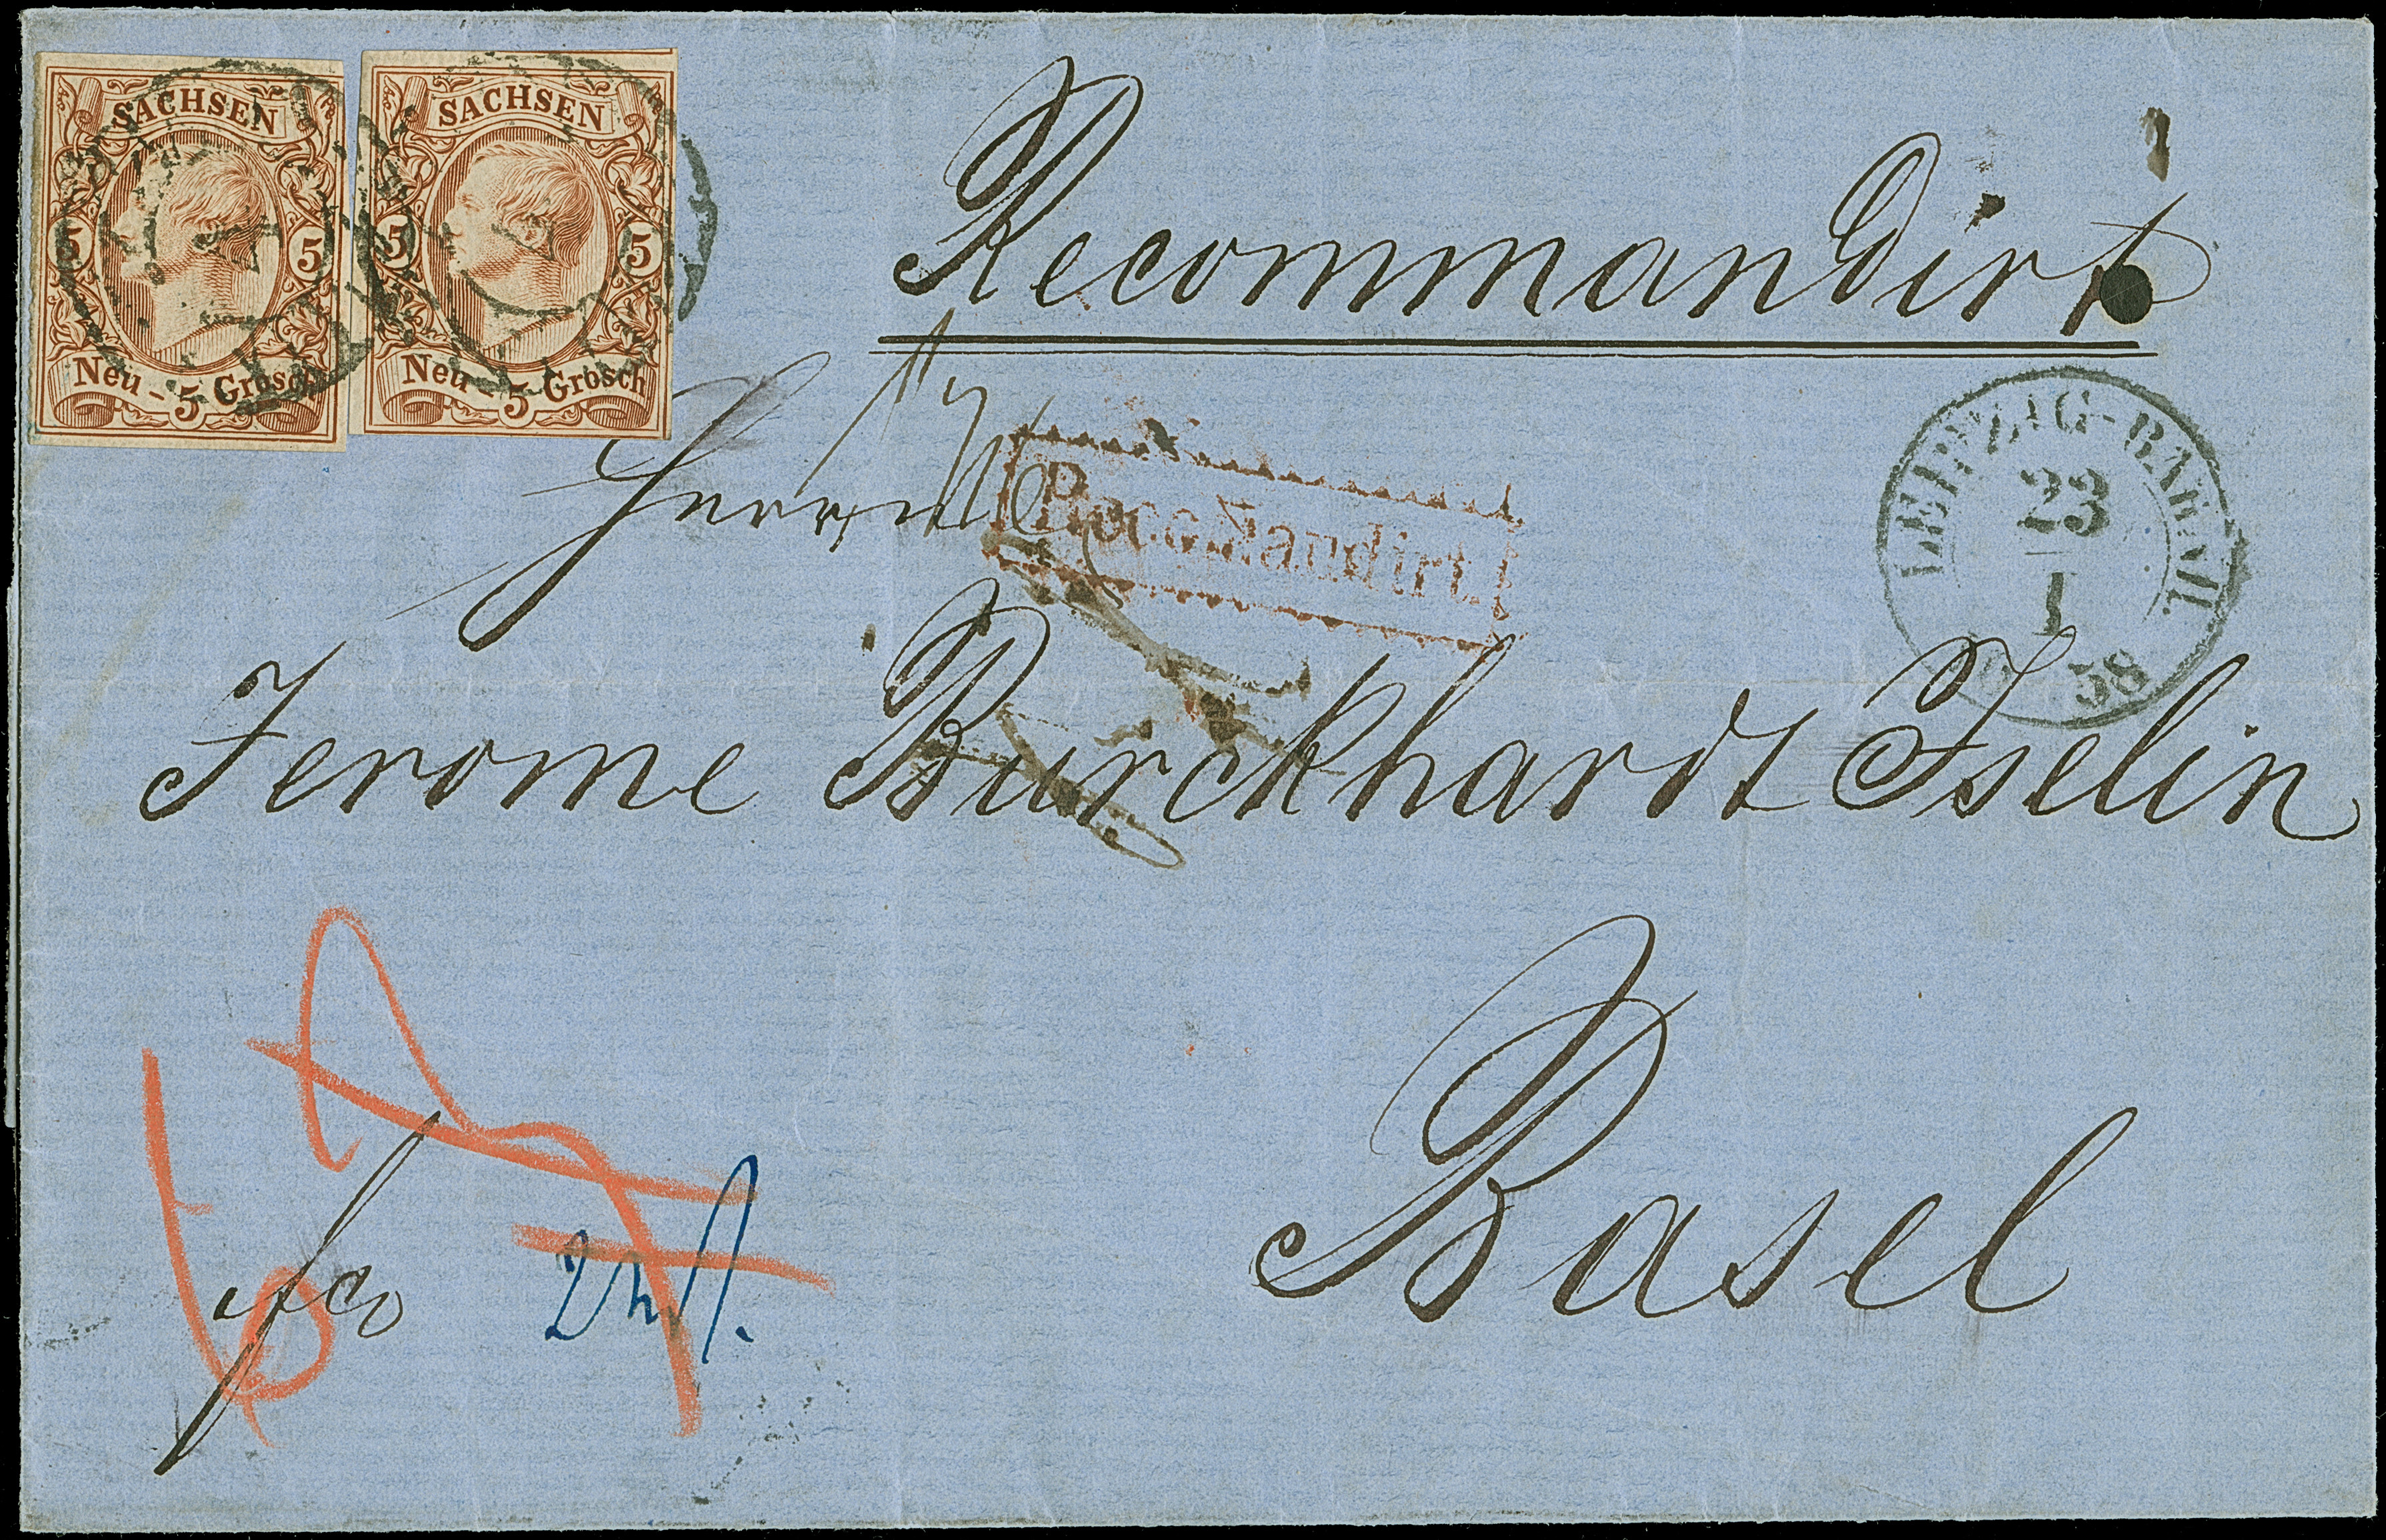 SACHSEN
5 5
Neu - 5 Grosch
SACHSEN
5 5
Neu - 5 Grosch
Recommandirt
Herrn
Recommandirt.
LEIPZIG-BAHNH.
23
I
58
Jerome Burckhardt Iselin
Basel
fco